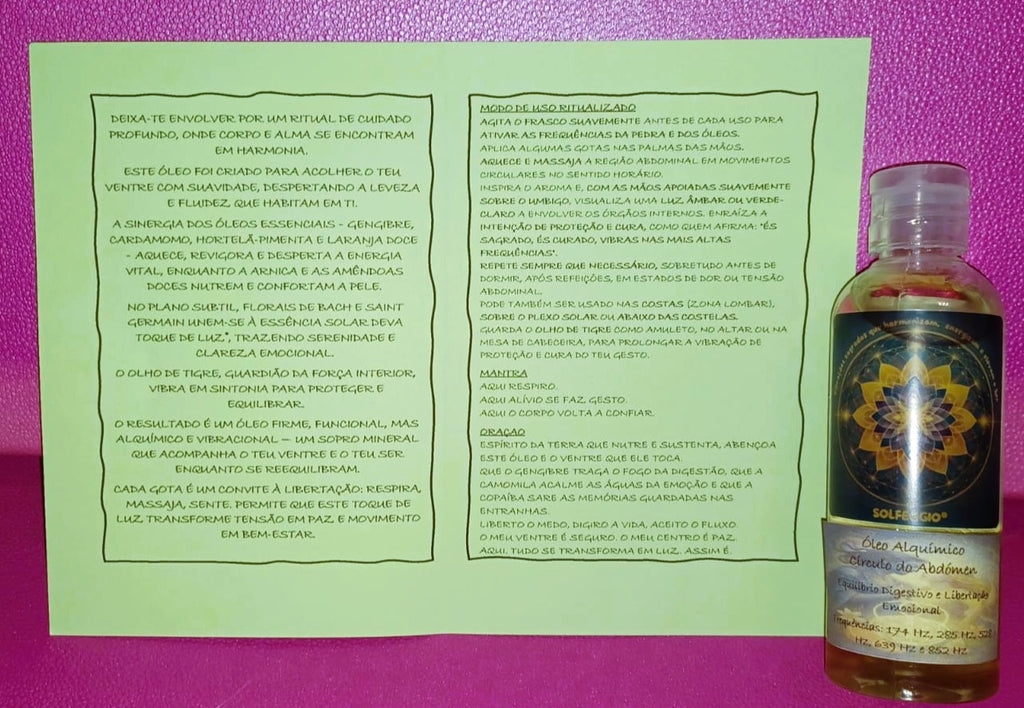 DEIXA-TE ENVOLVER POR UM RITUAL DE CUIDADO
PROFUNDO, ONDE CORPO E ALMA SE ENCONTRAM
EM HARMONIA.
ESTE ÓLEO FOI CRIADO PARA ACOLHER O TEU
VENTRE COM SUAVIDADE, DESPERTANDO A LEVEZA
E FLUIDEZ QUE HABITAM EM TI.
A SINERGIA DOS ÓLEOS ESSENCIAIS - GENGIBRE,
CARDAMOMO, HORTELÃ-PIMENTA E LARANJA DOCE
- AQUECE, REVIGORA E DESPERTA A ENERGIA
VITAL, ENQUANTO A ARNICA E AS AMÊNDOAS
DOCES NUTREM E CONFORTAM A PELE.
NO PLANO SUBTIL, FLORAIS DE BACH E SAINT
GERMAIN UNEM-SE À ESSÊNCIA SOLAR DEVA
TOQUE DE LUZ®, TRAZENDO SERENIDADE E
CLAREZA EMOCIONAL.
O OLHO DE TIGRE, GUARDIÃO DA FORÇA INTERIOR,
VIBRA EM SINTONIA PARA PROTEGER E
EQUILIBRAR.
O RESULTADO É UM ÓLEO FIRME, FUNCIONAL, MAS
ALQUÍMICO E VIBRACIONAL — UM SOPRO MINERAL
QUE ACOMPANHA O TEU VENTRE E O TEU SER
ENQUANTO SE REEQUILIBRAM.
CADA GOTA É UM CONVITE À LIBERTAÇÃO: RESPIRA,
MASSAJA, SENTE. PERMITE QUE ESTE TOQUE DE
LUZ TRANSFORME TENSÃO EM PAZ E MOVIMENTO
EM BEM-ESTAR.
MODO DE USO RITUALIZADO
AGITA O FRASCO SUAVEMENTE ANTES DE CADA USO PARA
ATIVAR AS FREQUÊNCIAS DA PEDRA E DOS ÓLEOS.
APLICA ALGUMAS GOTAS NAS PALMAS DAS MÃOS.
AQUECE E MASSAJA A REGIÃO ABDOMINAL EM MOVIMENTOS
CIRCULARES NO SENTIDO HORÁRIO.
INSPIRA O AROMA E, COM AS MÃOS APOIADAS SUAVEMENTE
SOBRE O UMBIGO, VISUALIZA UMA LUZ ÂMBAR OU VERDE-
CLARO A ENVOLVER OS ÓRGÃOS INTERNOS. ENRAÍZA A
INTENÇÃO DE PROTEÇÃO E CURA, COMO QUEM AFIRMA: "ÉS
SAGRADO, ÉS CURADO, VIBRAS NAS MAIS ALTAS
FREQUÊNCIAS".
REPETE SEMPRE QUE NECESSÁRIO, SOBRETUDO ANTES DE
DORMIR, APÓS REFEIÇÕES, EM ESTADOS DE DOR OU TENSÃO
ABDOMINAL.
PODE TAMBÉM SER USADO NAS COSTAS (ZONA LOMBAR),
SOBRE O PLEXO SOLAR OU ABAIXO DAS COSTELAS.
GUARDA O OLHO DE TIGRE COMO AMULETO, NO ALTAR OU NA
MESA DE CABECEIRA, PARA PROLONGAR A VIBRAÇÃO DE
PROTEÇÃO E CURA DO TEU GESTO.
MANTRA
AQUI RESPIRO.
AQUI ALÍVIO SE FAZ GESTO.
AQUI O CORPO VOLTA A CONFIAR.
ORAÇAO
ESPÍRITO DA TERRA QUE NUTRE E SUSTENTA, ABENÇOA
ESTE ÓLEO E O VENTRE QUE ELE TOCA.
QUE O GENGIBRE TRAGA O FOGO DA DIGESTÃO, QUE A
CAMOMILA ACALME AS ÁGUAS DA EMOÇÃO E QUE A
COPAÍBA SARE AS MEMÓRIAS GUARDADAS NAS
ENTRANHAS.
LIBERTO O MEDO, DIGIRO A VIDA, ACEITO O FLUXO.
O MEU VENTRE É SEGURO. O MEU CENTRO É PAZ.
AQUI, TUDO SE TRANSFORMA EM LUZ. ASSIM É.
sagradas que harmonizam, energizam e
SOLFEGGIO®
Óleo Alquímico
Círculo do Abdómen
Equilíbrio Digestivo e Libertação
Emocional
Frequências: 174 Hz, 285 Hz, 528
Hz, 639 Hz e 852 Hz